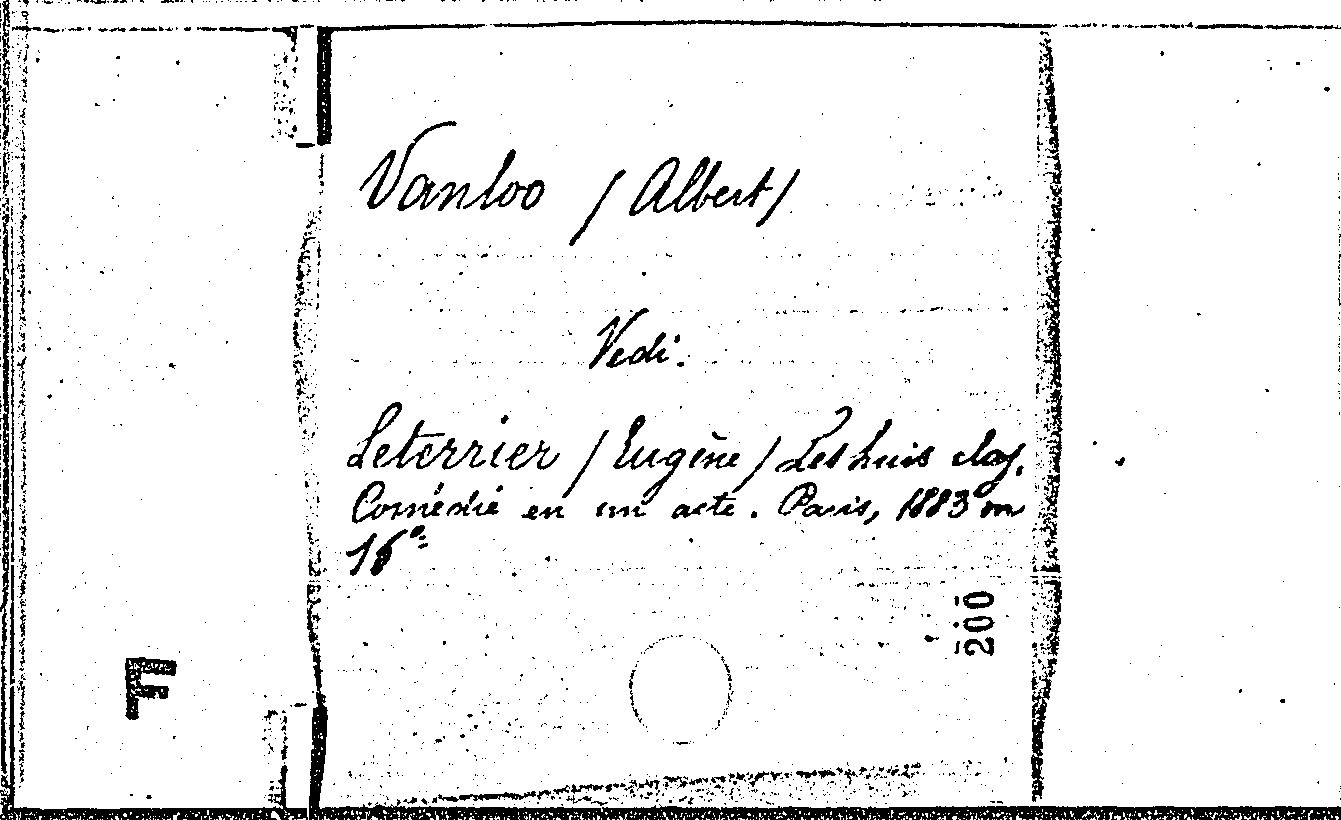 Vanloo (Albert)
Vedi.
Leterrier (Eugène) Les huis clos.
Comédie en un acte. Paris, 1883 in
16°=
200
F